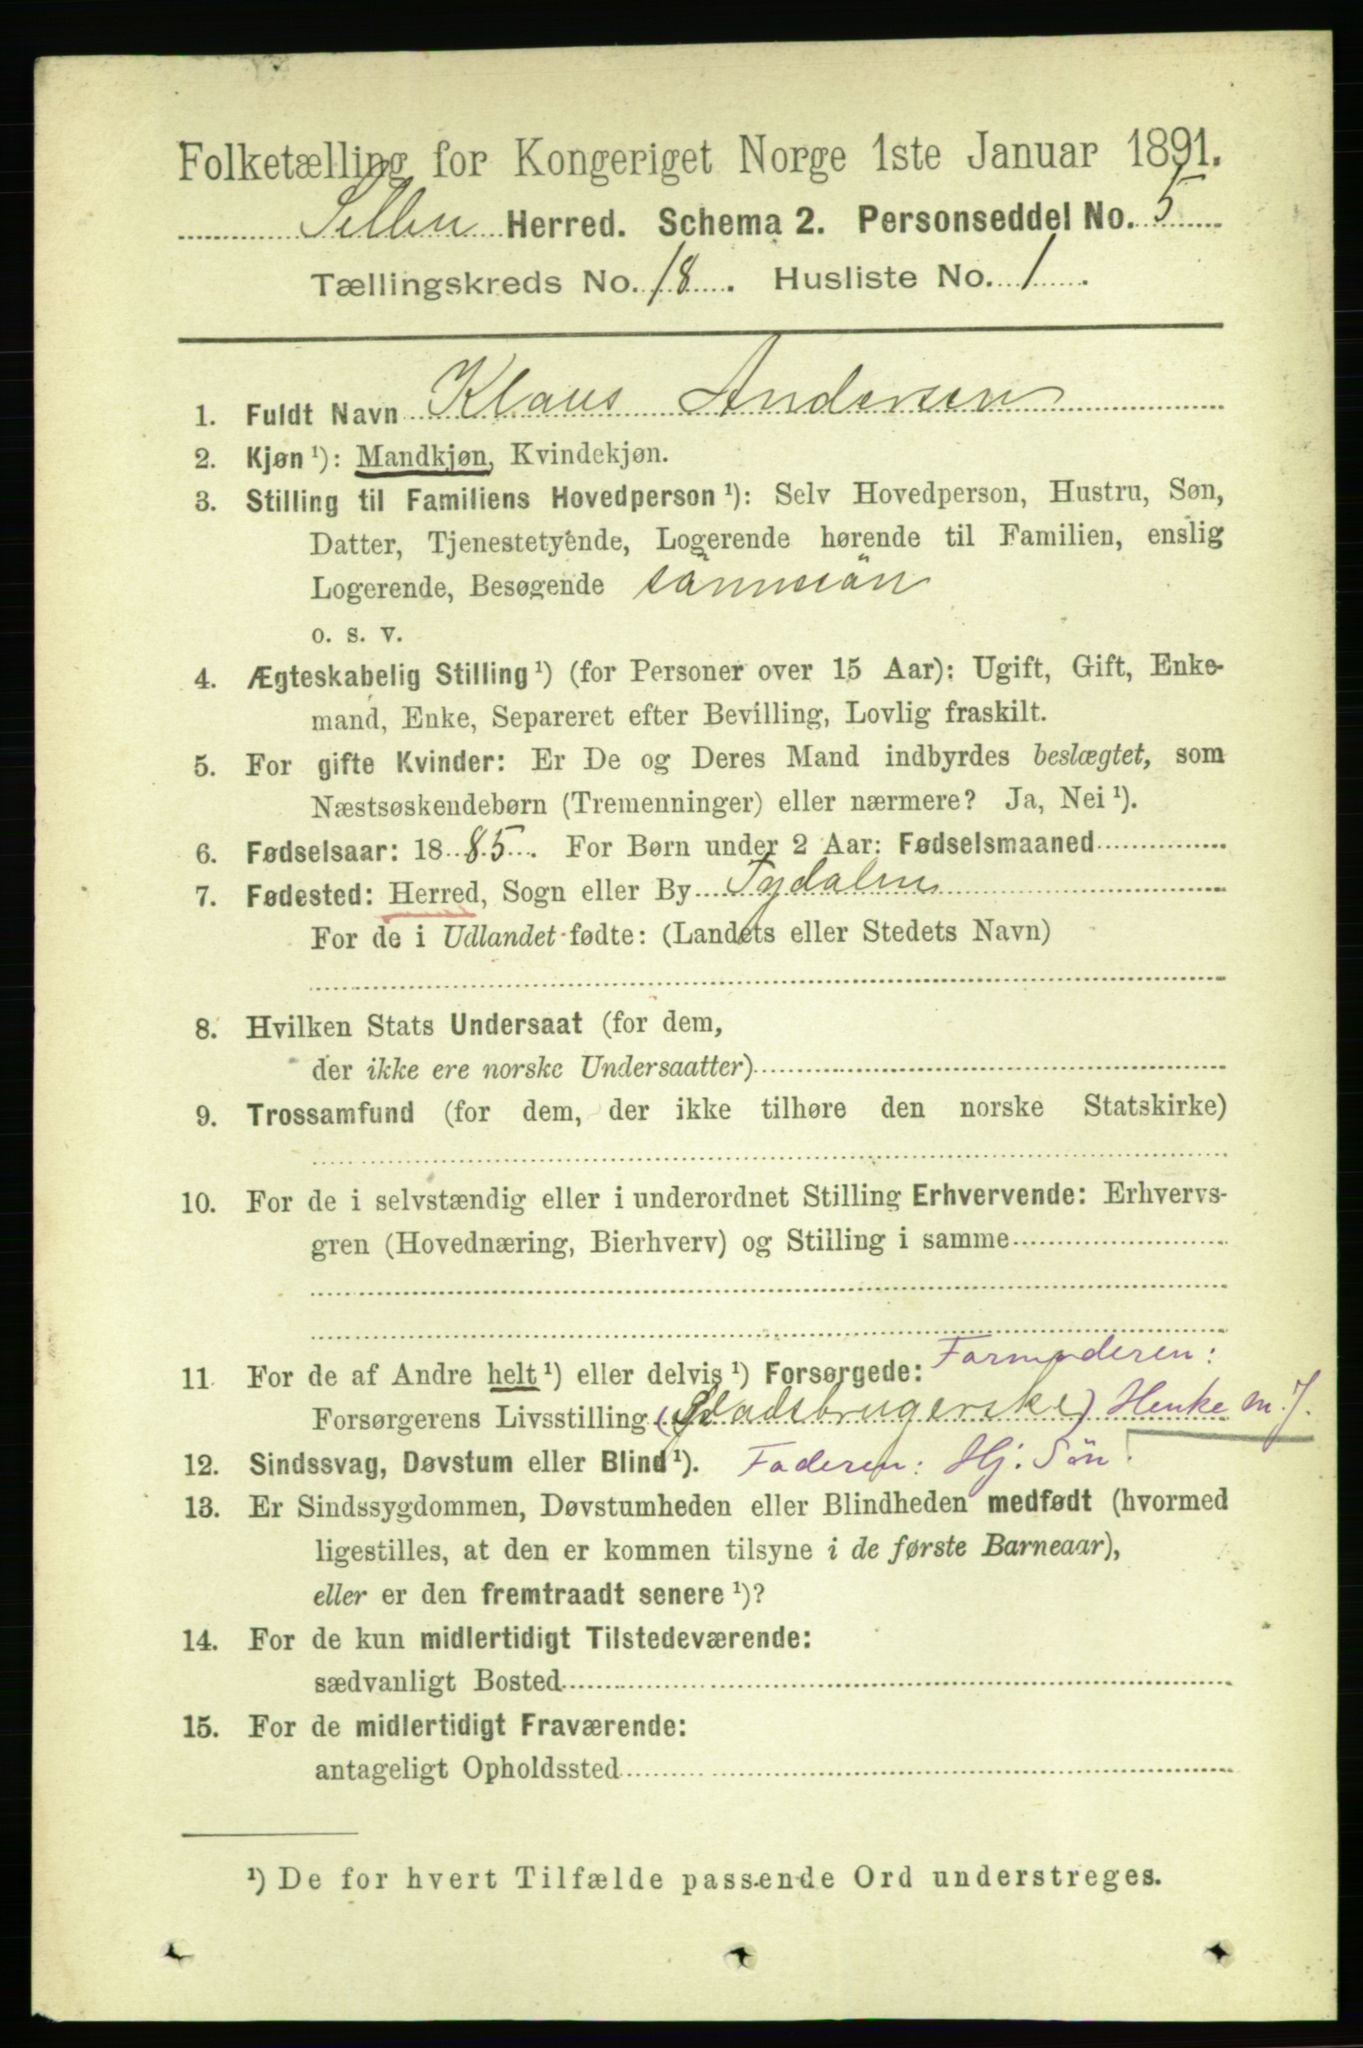 Folketælling for Kongeriget Norge 1ste Januar 1891.
Selbu Herred. Schema 2. Personseddel No. 5
Tællingskreds No. 18. Husliste No. 1.
1. Fuldt Navn Klaus Andersen
2. Kjøn ¹): Mandkjøn, Kvindekjøn.
3. Stilling til Familiens Hovedperson ¹): Selv Hovedperson, Hustru, Søn,
Datter, Tjenestetyende, Logerende hørende til Familien, enslig
Logerende, Besøgende sönnesön
o. s. v.
4. Ægteskabelig Stilling ¹) (for Personer over 15 Aar): Ugift, Gift, Enke-
mand, Enke, Separeret efter Bevilling, Lovlig fraskilt.
5. For gifte Kvinder: Er De og Deres Mand indbyrdes beslægtet, som
Næstsøskendebørn (Tremenninger) eller nærmere? Ja, Nei ¹).
6. Fødselsaar: 1885. For Børn under 2 Aar: Fødselsmaaned
7. Fødested: Herred, Sogn eller By Tydalen
For de i Udlandet fødte: (Landets eller Stedets Navn)
8. Hvilken Stats Undersaat (for dem,
der ikke ere norske Undersaatter)
9. Trossamfund (for dem, der ikke tilhøre den norske Statskirke)
10. For de i selvstændig eller i underordnet Stilling Erhvervende: Erhvervs-
gren (Hovednæring, Bierhverv) og Stilling i samme
11. For de af Andre helt ¹) eller delvis ¹) Forsørgede: Farmoderen:
Forsørgerens Livsstilling (Pladsbrugerske) Henke m. J.
12. Sindssvag, Døvstum eller Blind ¹). Faderen: Hj. Sön.
13. Er Sindssygdommen, Døvstumheden eller Blindheden medfødt (hvormed
ligestilles, at den er kommen tilsyne i de første Barneaar),
eller er den fremtraadt senere ¹)?
14. For de kun midlertidigt Tilstedeværende:
sædvanligt Bosted
15. For de midlertidigt Fraværende:
antageligt Opholdssted
¹) De for hvert Tilfælde passende Ord understreges.